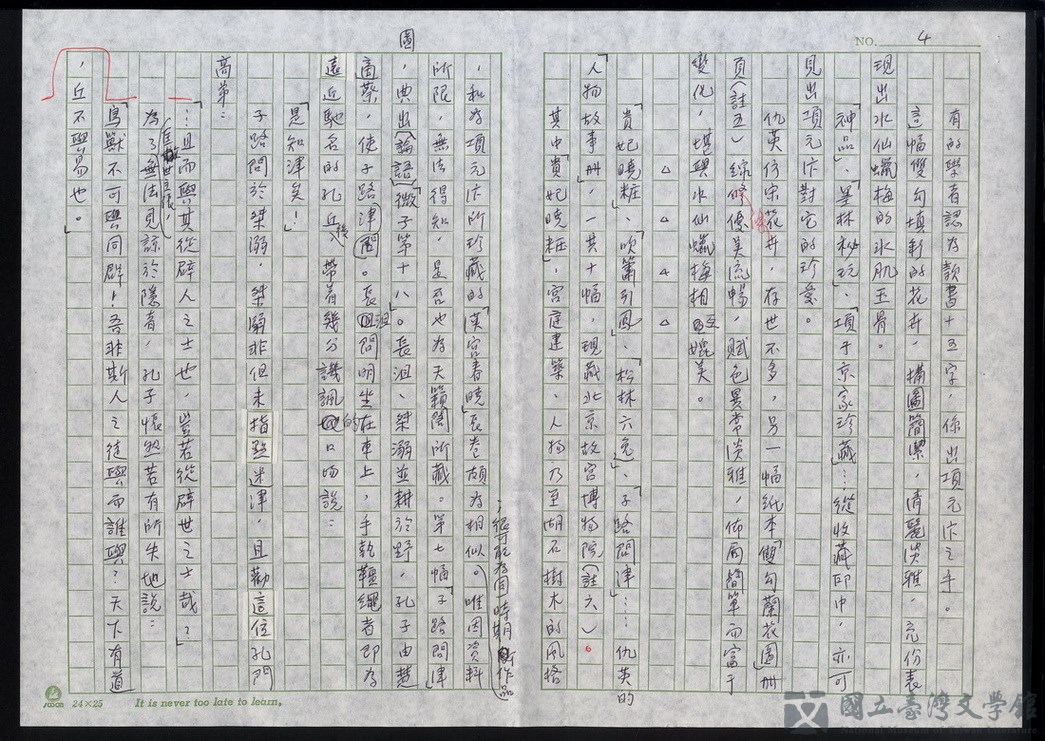 NO. 4
有的學者認為款書十五字,係出項元汴之手。
這幅雙勾填彩的花卉,構圖簡潔,清麗淡雅,充份表
現出水仙蠟梅的冰肌玉骨。
「神品」、「墨林秘玩」、「項子京家珍藏」…從收藏印中,亦可
見出項元汴對它的珍愛。
仇英仿宋花卉,存世不多,另一幅紙本「雙勾蘭花圖」冊
頁(註五)線條優美流暢,賦色異常淡雅,佈局簡單而富于
變化,堪與水仙蠟梅相互媲美。
△ △ △ △
「貴妃曉粧」、「吹簫引鳳」、「松林六逸」、「子路問津」…仇英的
「人物故事冊」,一共十幅,現藏北京故宮博物院(註六)。
其中「貴妃曉粧」,宮庭建築、人物乃至湖石樹木的風格
,和為項元汴所珍藏的「漢宮春曉」長卷頗為相似。
,很可能為同時期作品
唯因資料
所限,無法得知,是否也為天籟閣所藏。第七幅「子路問津
圖」
,典出《論語》「微子第十八」。長沮、桀溺並耕於野,孔子由楚
適蔡,使子路問津。長沮問明坐在車上,手執韁繩者即為
遠近馳名的孔丘後,帶着幾分譏諷的口吻說:
「是知津矣!」
子路問於桀溺,桀溺非但未指點迷津,且勸這位孔門
高弟:
「…且而與其從辟人之士也,豈若從辟世之士哉?」
為了無法見諒於隱者,孔子悵然若有所失地說:
「鳥獸不可與同群!吾非斯人之徒與而誰與?天下有道
,丘不與易也。」
24×25 It is never too late to learn,
國立臺灣文學館
National Museum of Taiwan Literature